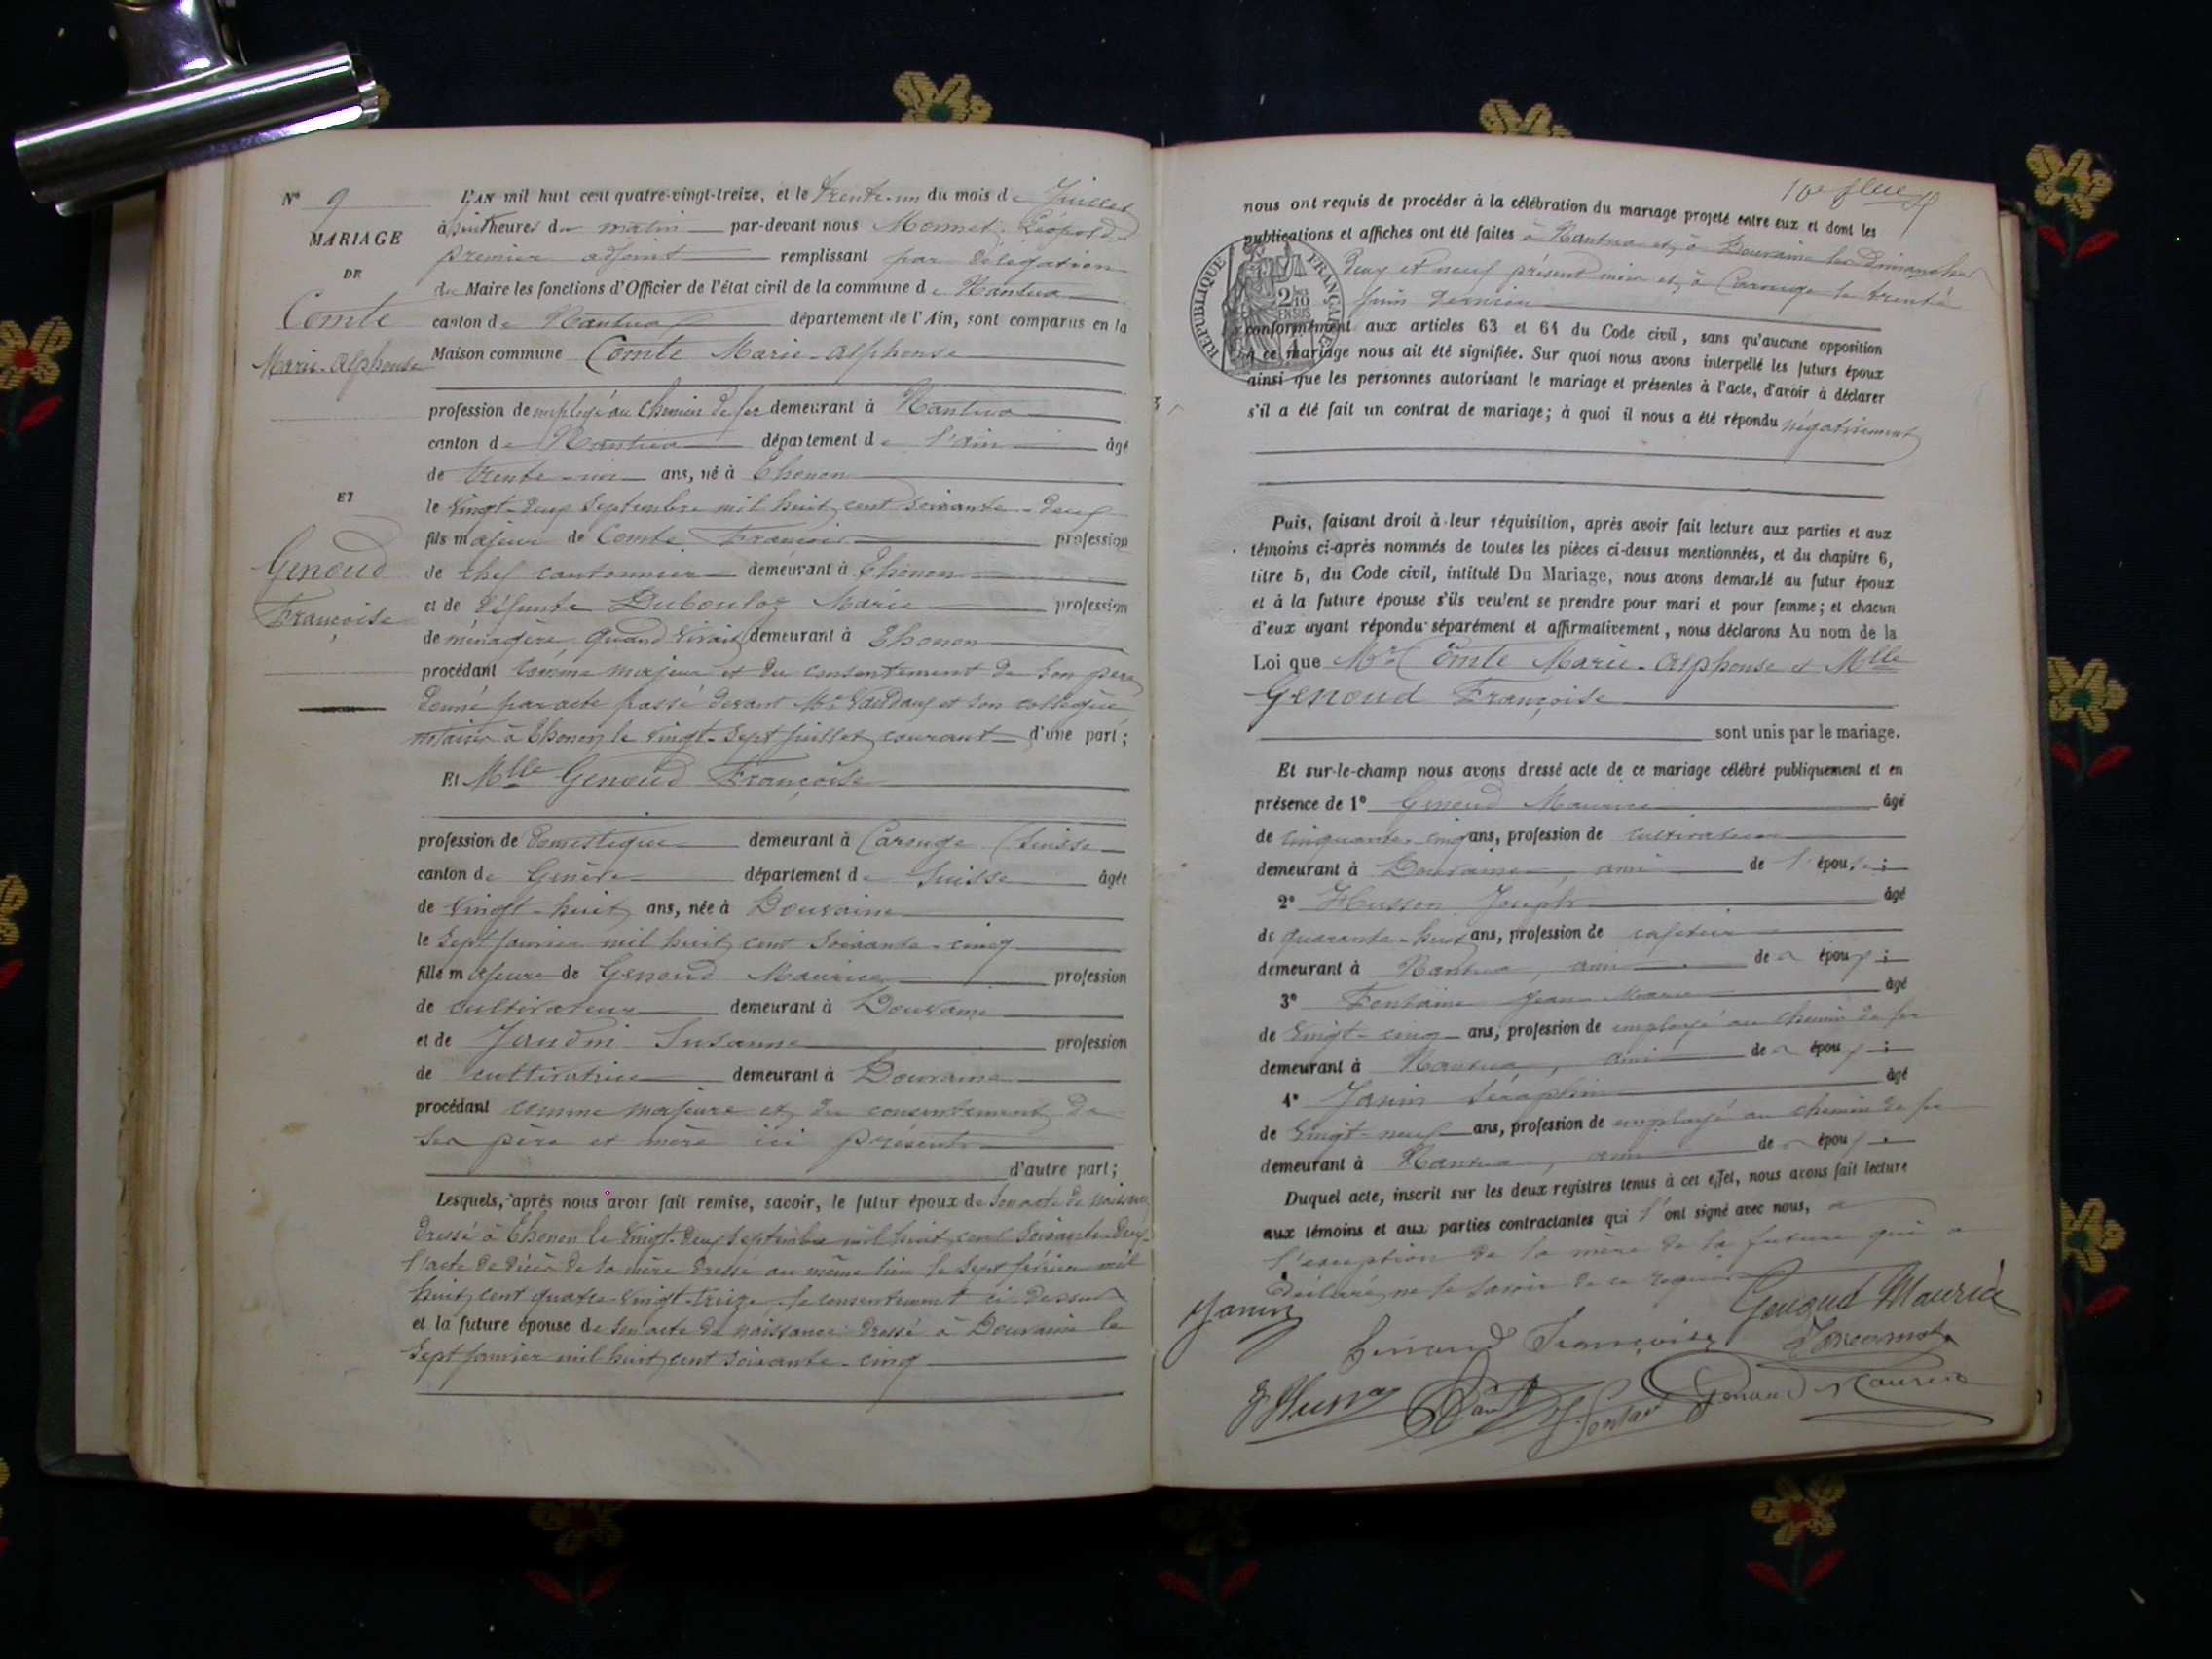 N° 9
MARIAGE
DE
Comte
Marie-Alphonse
ET
Genoud
Françoise
L'AN mil huit cent quatre-vingt-treize, et le trente-un du mois de Juillet
à huit heures du matin par-devant nous Monnet Léopold
premier adjoint remplissant par délégation
du Maire les fonctions d'Officier de l'état civil de la commune de Nantua
canton de Nantua département de l'Ain, sont comparus en la
Maison commune Comte Marie-Alphonse
profession de employé au chemin de fer demeurant à Nantua
canton de Nantua département de l'Ain âgé
de trente-un ans, né à Thonon
le vingt-deux Septembre mil huit cent soixante-deux
fils majeur de Comte François profession
de chef cantonnier demeurant à Thonon
et de défunte Dubouloz Marie profession
de ménagère, quand vivait demeurant à Thonon
procédant comme majeur et du consentement de son père
donné par acte passé devant Me et son collègue
notaires à Thonon le vingt-sept juillet courant d'une part;
Et Mlle Genoud Françoise
profession de domestique demeurant à Carouge (Suisse
canton de Genève département de Suisse âgée
de vingt-huit ans, née à Douvaine
le sept janvier mil huit cent soixante-cinq
fille majeure de Genoud Maurice profession
de cultivateur demeurant à Douvaine
et de Jaudin Susanne profession
de cultivatrice demeurant à Douvaine
procédant comme majeure et du consentement de
ses père et mère ici présents
d'autre part;
Lesquels, après nous avoir fait remise, savoir, le futur époux de son acte de naissance
dressé à Thonon le vingt-deux septembre mil huit cent soixante-deux
l'acte de décès de sa mère dressé au même lieu le sept février mil
huit cent quatre-vingt-treize, le consentement ci-dessus
et la future épouse de son acte de naissance dressé à Douvaine le
sept janvier mil huit cent soixante-cinq
nous ont requis de procéder à la célébration du mariage projeté entre eux et dont les
publications et affiches ont été faites à Nantua et à Douvaine les Dimanches
deux et neuf présent mois et à Carouge le trente
juin dernier
RÉPUBLIQUE FRANÇAISE
2/10 EN SUS
conformément aux articles 63 et 64 du Code civil, sans qu'aucune opposition
à ce mariage nous ait été signifiée. Sur quoi nous avons interpellé les futurs époux
ainsi que les personnes autorisant le mariage et présentes à l'acte, d'avoir à déclarer
s'il a été fait un contrat de mariage; à quoi il nous a été répondu négativement
Puis, faisant droit à leur réquisition, après avoir fait lecture aux parties et aux
témoins ci-après nommés de toutes les pièces ci-dessus mentionnées, et du chapitre 6,
titre 5, du Code civil, intitulé Du Mariage, nous avons demandé au futur époux
et à la future épouse s'ils veulent se prendre pour mari et pour femme; et chacun
d'eux ayant répondu séparément et affirmativement, nous déclarons Au nom de la
Loi que Mr Comte Marie-Alphonse et Mlle
Genoud Françoise
sont unis par le mariage.
Et sur-le-champ nous avons dressé acte de ce mariage célébré publiquement et en
présence de 1° Genoud Maurice âgé
de cinquante-cinq ans, profession de cultivateur
demeurant à Douvaine, ami de l'épouse;
2° Husson Joseph âgé
de quarante-huit ans, profession de cafetier
demeurant à Nantua, ami de époux;
3° Fontaine Jean Marie âgé
de vingt-cinq ans, profession de employé au chemin de fer
demeurant à Nantua, ami de époux;
4° Janin Séraphin âgé
de vingt-neuf ans, profession de employé au chemin de fer
demeurant à Nantua, ami de époux
Duquel acte, inscrit sur les deux registres tenus à cet effet, nous avons fait lecture
aux témoins et aux parties contractantes qui l'ont signé avec nous, à
l'exception de la mère de la future qui a
déclaré ne le savoir de ce requise
Janin
Genoud Françoise
Genoud Maurice
J Husson
Genoud Maurice